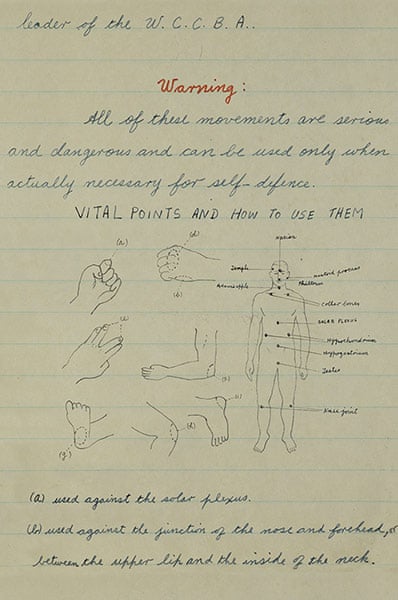 leader of the W. C. C. B. A..
Warning:
All of these movements are serious
and dangerous and can be used only when
actually necessary for self-defence.
VITAL POINTS AND HOW TO USE THEM
(a)
(d)
(b)
Temple
Adams apple
mastoid process
Philtrum
Collar bones
SOLAR PLEXUS
Hypochondrium
Hypogastrium
Testes
Knee joint
(e)
(h)
(g)
(d)
(c)
(a) used against the solar plexus.
(b) used against the junction of the nose and forehead, or
between the upper lip and the inside of the neck.